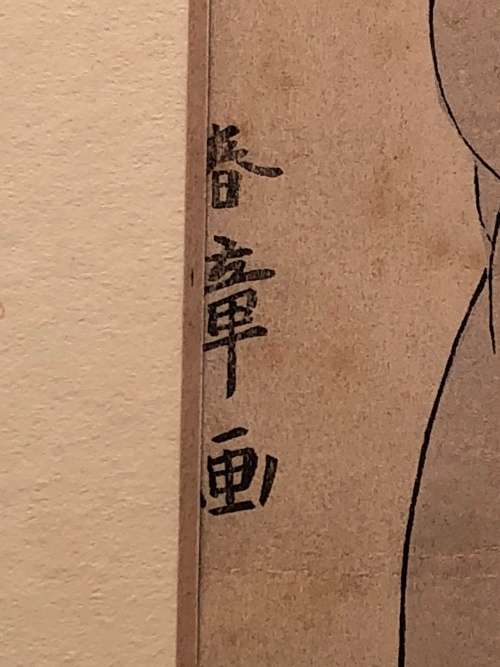 春章画